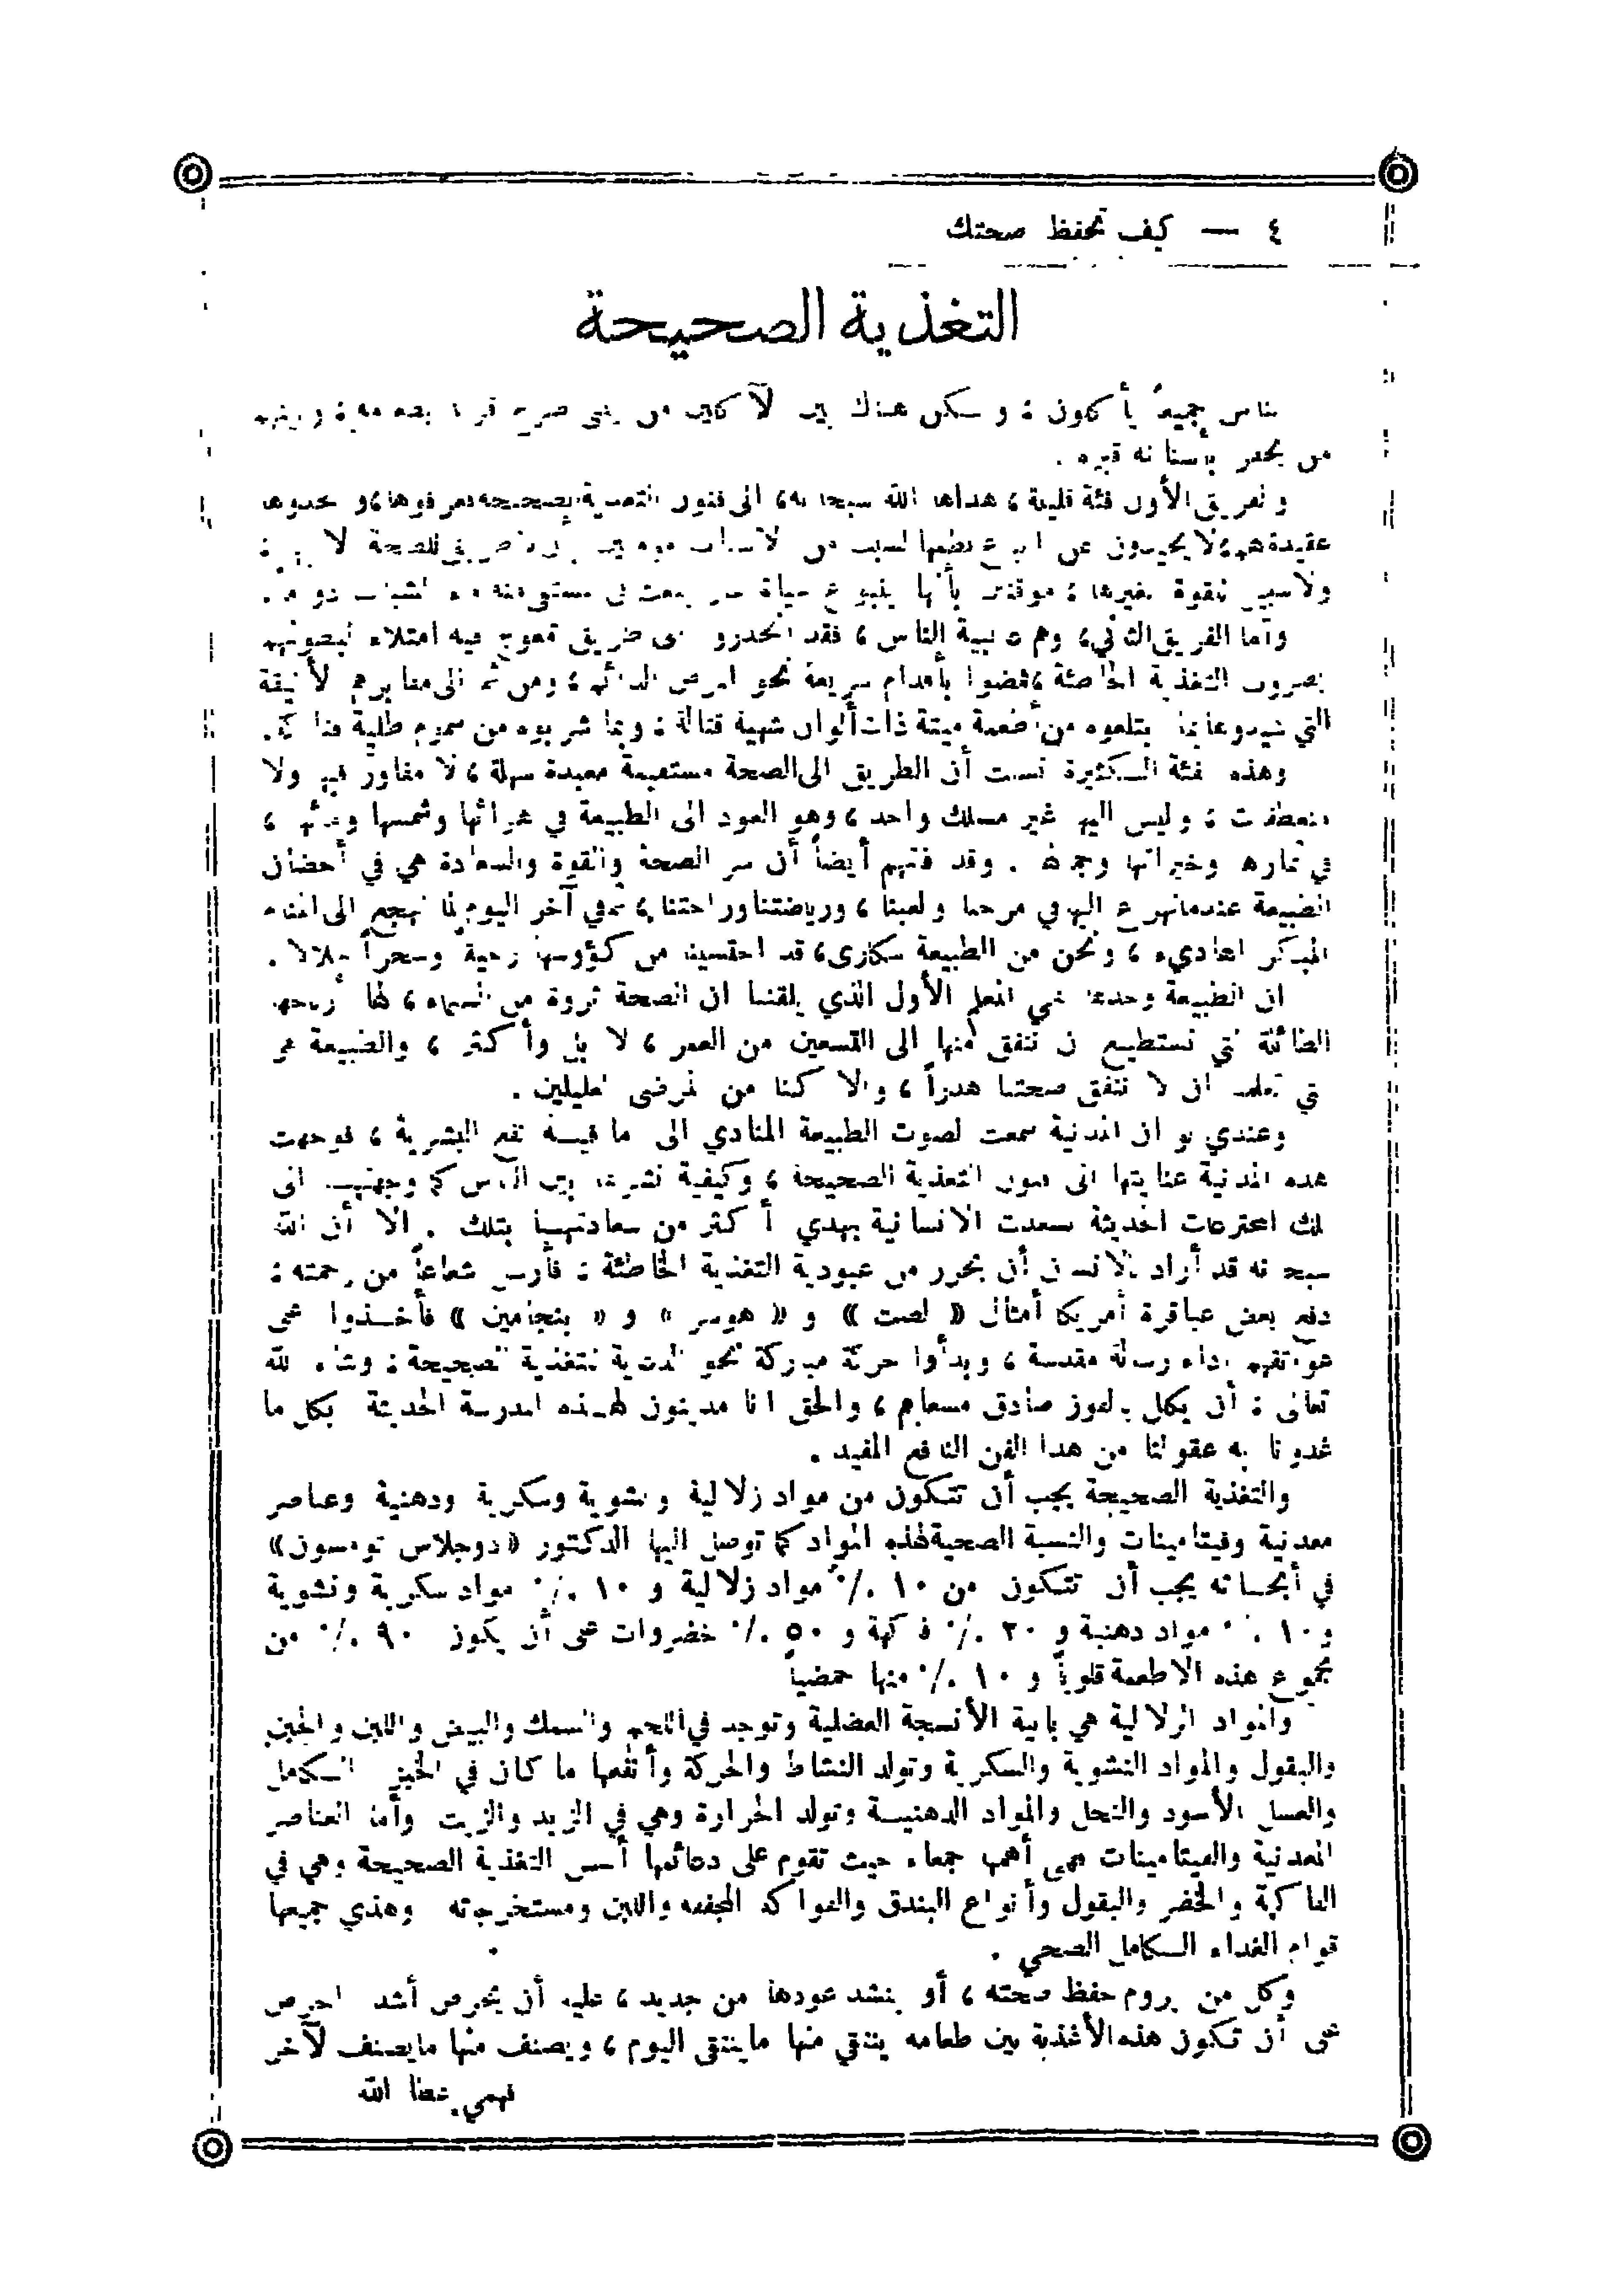 ٤ — كيف تحفظ صحتك
التغذية الصحيحة
الناس جميعاً يأكلون ، ولكن هناك بين الآكلين من يبني صرح قوة بطعامه ، وبينهم
من يحفر بأسنانه قبره .
والفريق الأول فئة قليلة ، هداها الله سبحانه ، الى فنون التغذية الصحيحة فعرفوها ، و
عقيدة لهم ، لا يحيدون عن اتباع نظمها لسبب من الأسباب للصحة لا
ولا سبيل للقوة بغيرها ، بأنها ينبوع حياة
وأما الفريق الثاني ، وهم بقية الناس ، فقد انحدروا في طريق معوج فيه امتلاء لبطونهم
بضروب التغذية الخاطئة ، فمضوا بأقدام سريعة نحو أمراض ، ومن ثم الى مقابرهم الأنيقة
التي شيدوها بما ابتلعوه من أطعمة ميتة ذات ألوان شهية قتالة ، وبما شربوه من سموم
وهذه الفئة الكثيرة نسيت أن الطريق الى الصحة مستقيمة معبدة سهلة ، لا مغاور فيها ولا
منعطفات ، وليس اليها غير مسلك واحد ، وهو العود الى الطبيعة في هوائها وشمسها ومائها ،
في ثمارها وخيراتها وجمالها . وقد فاتهم أيضاً أن سر الصحة والقوة والسعادة هي في أحضان
الطبيعة عندما نهرع اليها في مرحنا ولعبنا ، ورياضتنا وراحتنا ، ثم في آخر اليوم لما نهجع الى
المبكر الهاديء ، ونحن من الطبيعة سكارى ، قد احتسينا من كؤوسها وسحراً حلالا .
ان الطبيعة وحدها هي المعلم الأول الذي يلقننا ان الصحة ثروة من السماء ، لها أرباحها
الطائلة التي نستطيع أن ننفق منها الى التسعين من العمر ، لا بل وأكثر ، والطبيعة هي
التي تعلمنا ان لا ننفق صحتنا هدراً ، والا كنا من المرضى العليلين .
وعندي لو ان المدنية سمعت لصوت الطبيعة المنادي الى ما فيه نفع البشرية ، فوجهت
هذه المدنية عنايتها الى فنون التغذية الصحيحة ، وكيفية نشرها بين الناس كما وجهتها الى
تلك المخترعات الحديثة لسعدت الانسانية بهذي أكثر من سعادتها بتلك . الا أن الله
سبحانه قد أراد للانسان أن يتحرر من عبودية التغذية الخاطئة ، فأرسل شعاعاً من رحمته ،
دفع بعض عباقرة أمريكا أمثال « لصت » و « هوسر » و « بنجامين » فأخذوا على
عواتقهم أداء رسالة مقدسة ، وبدأوا حركة مباركة نحو التغذية الصحيحة ، وشاء الله
تعالى ، أن يكلل بالفوز صادق مسعاهم ، والحق انا مدينون لهذه المدرسة الحديثة بكل ما
غذونا به عقولنا من هذا الفن النافع المفيد .
والتغذية الصحيحة يجب أن تتكون من مواد زلالية ونشوية وسكرية ودهنية وعناصر
معدنية وفيتامينات والنسبة الصحية لهذه المواد كما توصل اليها الدكتور « دوجلاس تومسون »
في أبحاثه يجب أن تتكون من ١٠ ٪ مواد زلالية و ١٠ ٪ مواد سكرية ونشوية
و ١٠ ٪ مواد دهنية و ٢٠ ٪ فاكهة و ٥٠ ٪ خضروات على أن يكون ٩٠ ٪ من
مجموع هذه الاطعمة قلوياً و ١٠ ٪ منها حمضياً
والمواد الزلالية هي بانية الأنسجة العضلية وتوجد في اللحم والسمك والبيض واللبن والجبن
والبقول والمواد النشوية والسكرية وتولد النشاط والحركة وأنفعها ما كان في الخبز الكامل
والعسل الأسود والنحل والمواد الدهنية وتولد الحرارة وهي في الزبد والزيت وأما العناصر
المعدنية والفيتامينات فهي أهمها جمعاء حيث تقوم على دعائمها أسس التغذية الصحيحة وهي في
الفاكهة والخضر والبقول وأنواع البندق والفواكه المجففه واللبن ومستخرجاته وهذي جميعها
قوام الغذاء الكامل الصحي .
وكل من يروم حفظ صحته ، أو ينشد عودها من جديد ، عليه أن يحرص أشد الحرص
على أن تكون هذه الأغذية بين طعامه ينتقي منها ما ينتقي اليوم ، ويصنف منها ما يصنف لآخر
فهمي عطا الله